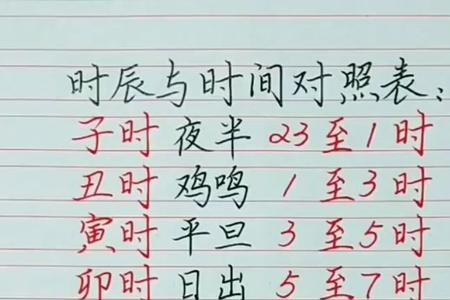 时辰与时间对照表：
子时 夜半 23至1时
丑时 鸡鸣 1至3时
寅时 平旦 3至5时
卯时 日出 5至7时